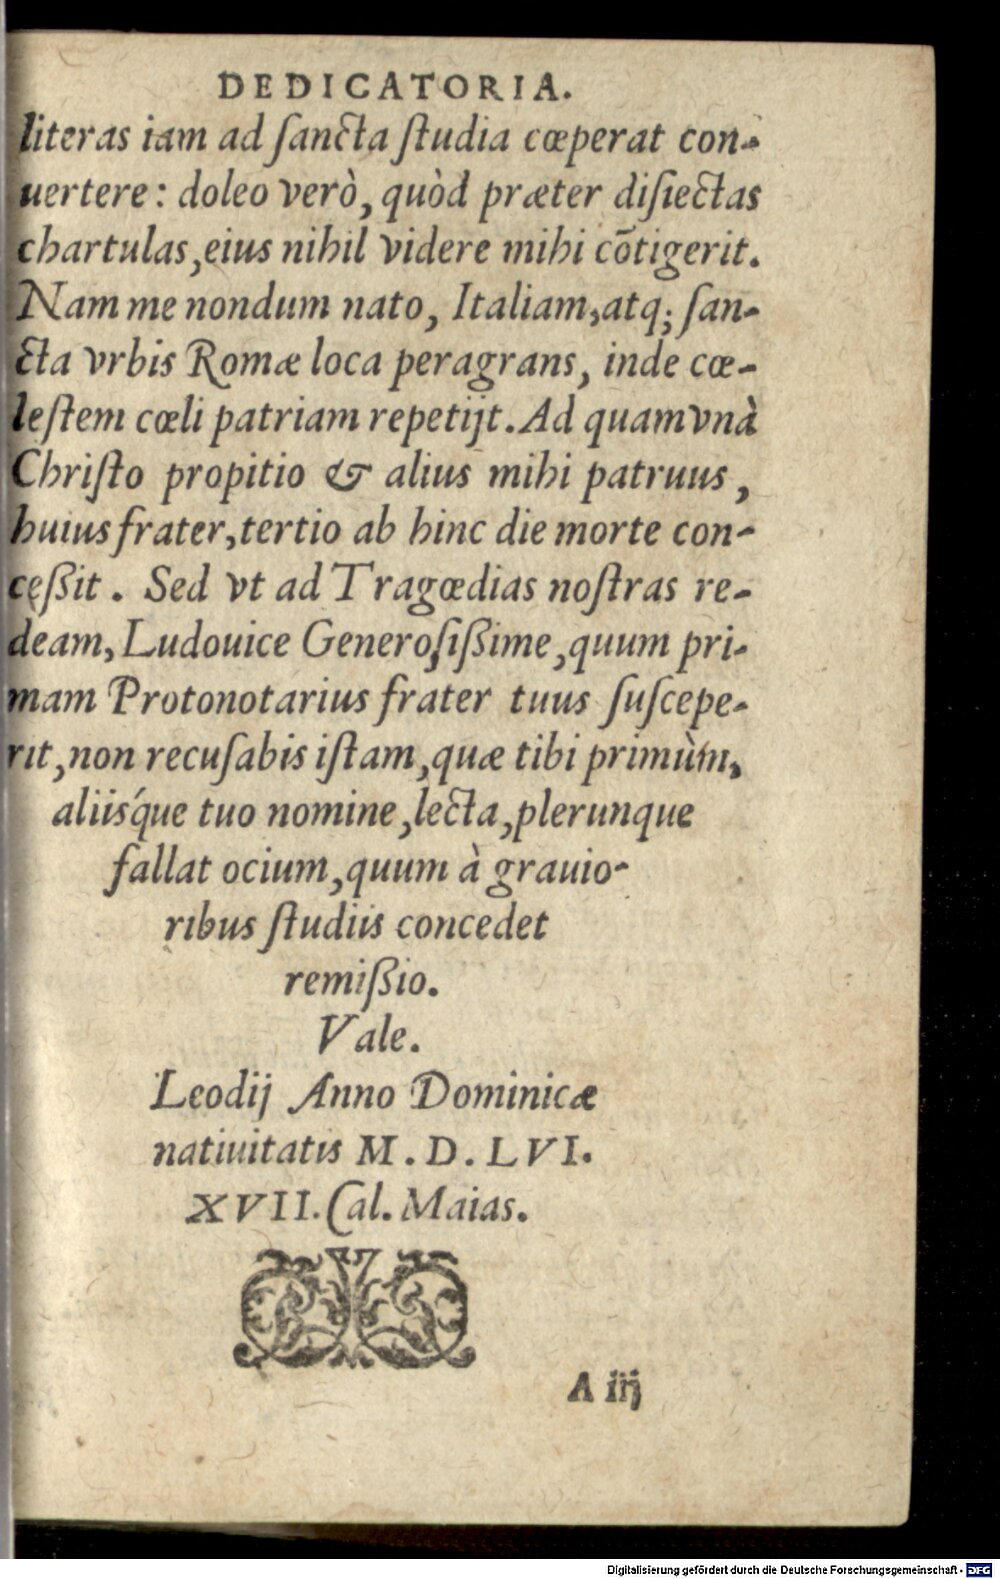 DEDICATORIA.
literas iam ad ſancta ſtudia cœperat con-
uertere: doleo verò, quòd præter diſiectas
chartulas, eius nihil videre mihi cõtigerit.
Nam me nondum nato, Italiam, atq; ſan-
cta vrbis Romæ loca peragrans, inde cœ-
leſtem cœli patriam repetijt. Ad quam vnà
Chriſto propitio & alius mihi patruus,
huius frater, tertio ab hinc die morte con-
ceßit. Sed vt ad Tragœdias noſtras re-
deam, Ludouice Generoſißime, quum pri-
mam Protonotarius frater tuus ſuſcepe-
rit, non recuſabis iſtam, quæ tibi primùm,
aliisq́ue tuo nomine, lecta, plerunque
fallat ocium, quum à grauio-
ribus ſtudiis concedet
remißio.
Vale.
Leodij Anno Dominicæ
natiuitatis M. D. LVI.
XVII. Cal. Maias.
A iij
Digitalisierung gefördert durch die Deutsche Forschungsgemeinschaft - DFG